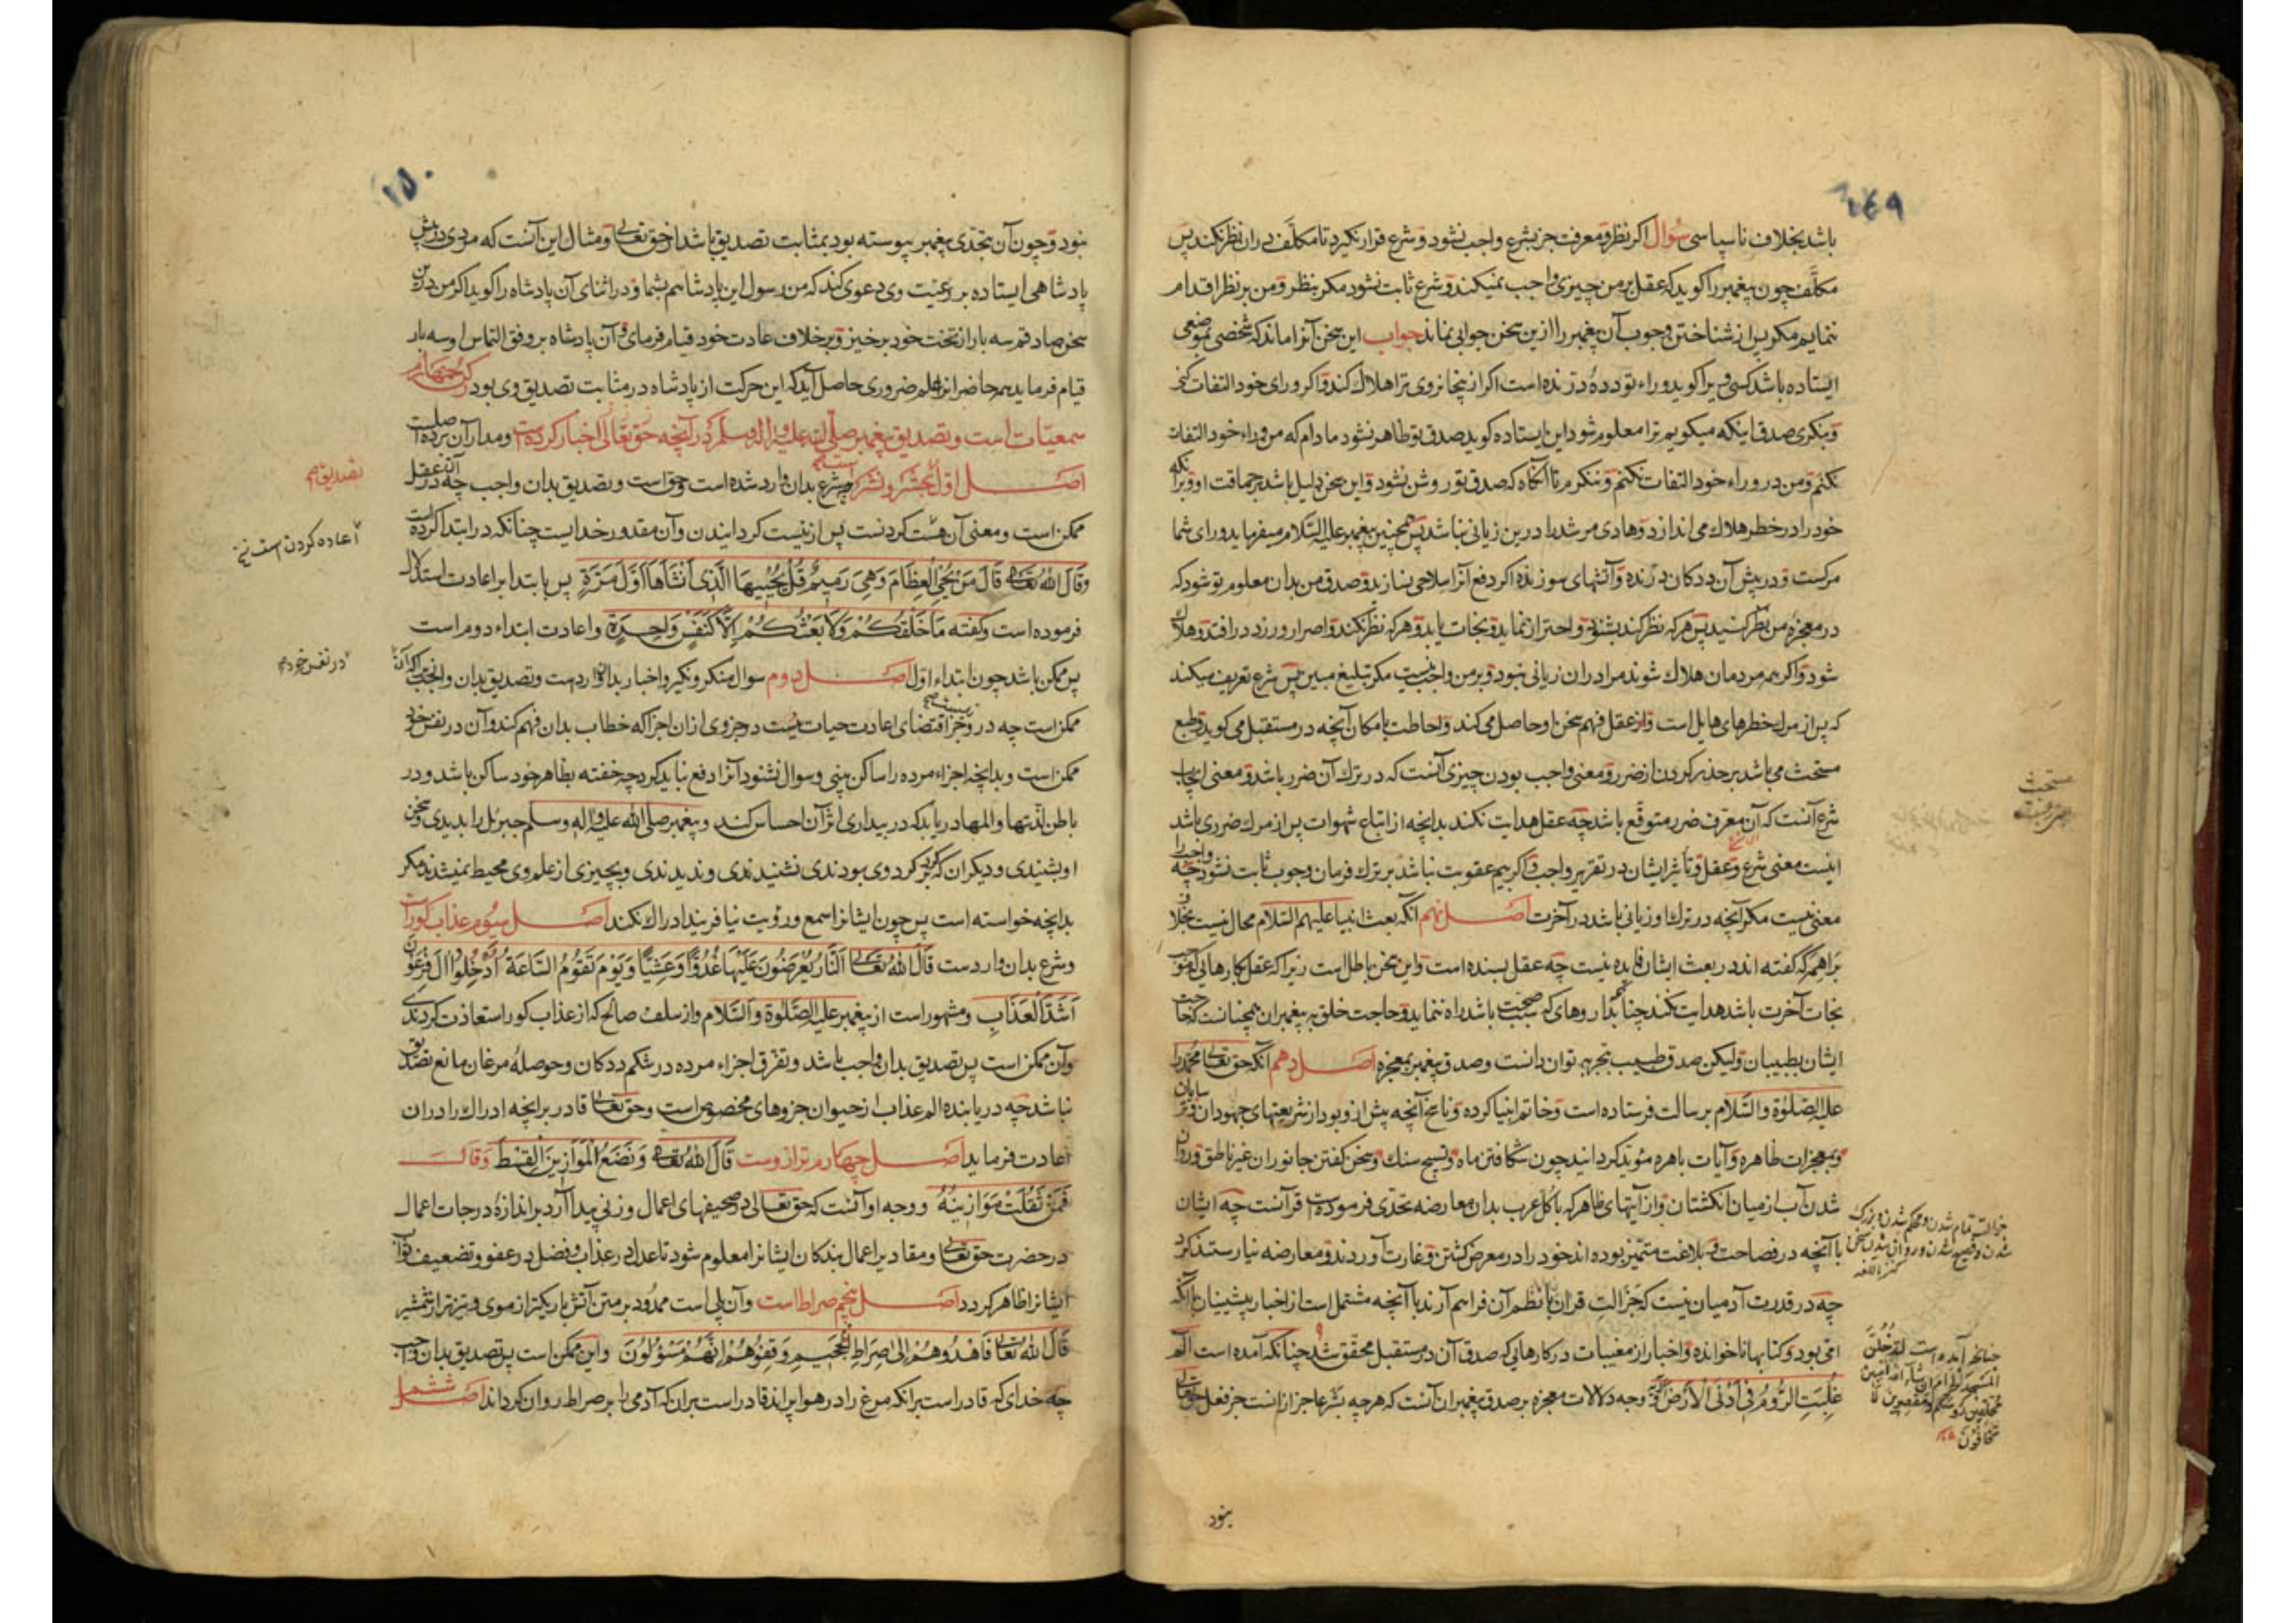 ۱۴۹
باشد بخلاف ناسپاسی سؤال اکر نظر و معرفت جز بشرع واجب نشود و شرع قرار نکیرد تا مکلّف دران نظر نکند پس
مکلّف چون پیغمبر را کوید که عقل بر من چیزی واجب نمیکند و شرع ثابت نشود مکر بنظر و من بر نظر اقدام
ننمایم مکر پس از شناختن وجوب آن پیغمبر را ازین سخن جوابی نماند جواب این سخن آنرا ماند که شخصی بموضعی
ایستاده باشد کسی ویرا کوید وراء تو ددهٔ درنده است اکر از ینجا نروی ترا هلاک کند و اکر ورای خود التفات کنی
و بنکری صدق اینکه میکویم ترا معلوم شود این ایستاده کوید صدق تو ظاهر نشود ما دام که من وراء خود التفات
نکنم و من در وراء خود التفات نکنم و ننکرم تا آنکاه که صدق تو روشن نشود و این سخن دلیل باشد بر حماقت او و برانکه
خود را در خطر هلاک می اندازد و هادی مرشد را درین زیانی نباشد پس همچنین پیغمبر علیه السّلام میفرماید ورای شما
مرکست و در پیش آن ددکان درنده و آتشهای سوزنده اکر دفع آنرا سلاحی نسازید و صدق من بدان معلوم تو شود که
در معجزهٔ من نظر کنید پس هر که نظر کند بشنود و احتراز نماید و نجات یابد و هر که نظر نکند و اصرار ورزد در افتد و هلاک
شود و اکر همه مردمان هلاک شوند مرا دران زیانی نبود و بر من واجب نیست مکر تبلیغ مبین پس شرع تعریف میکند
که پس از مرک خطرهای هایل است و از عقل فهم سخن او حاصل می کند و احاطت بامکان آنچه در مستقبل می کوید و طبع
مستحث می باشد بر حذر کردن از ضرر و معنی واجب بودن چیزی آنست که در ترک آن ضرر باشد و معنی ایجاب
شرع آنست که آن معرف ضرر متوقع باشد چه عقل هدایت نکند بدانچه از اتباع شهوات پس از مرک ضرری باشد
اینست معنی شرع و عقل و تأثیر ایشان در تقریر واجب و اکر بیم عقوبت نباشد بر ترک فرمان وجوب ثابت نشود چه واجب را
معنی نیست مکر آنچه در ترک او زیانی باشد در آخرت اصل نهم آنکه بعث انبیا علیهم السّلام محال نیست بخلاف
براهمه که کفته اند در بعث ایشان فایده نیست چه عقل بسنده است و این سخن باطل است زیرا که عقل بکارهایی که موجب
نجات آخرت باشد هدایت نکند چنانکه بداروهای که سبب صحت باشد راه ننماید و حاجت خلق به پیغمبران همچنانست که حاجت
ایشان بطبیبان ولیکن صدق طبیب بتجربه توان دانست و صدق پیغمبر بمعجزه اصل دهم آنکه حق تعالی محمّد را
علیه الصّلوة والسّلام برسالت فرستاده است و خاتم انبیا کرده و ناسخ آنچه پیش ازو بود از شریعتهای جهودان و ترسایان
و بمعجزات ظاهره و آیات باهره مؤید کردانید چون شکافتن ماه و تسبیح سنک و سخن کفتن جانوران غیر ناطق و روان
شدن آب از میان انکشتان و از آیتهای ظاهر که با کل عرب بدان معارضه تحدّی فرموده است قرآنست چه ایشان
با آنچه در فصاحت و بلاغت متمیّز بوده اند خود را در معرض کشتن و غارت آوردند و معارضه نیارستند کرد
چه در قدرت آدمیان نیست که جزالت قران با نظم آن فراهم آرند با آنچه مشتمل است از اخبار پیشینیان با آنکه
امّی بود و کتابها ناخوانده و اخبار از مغیبات در کارهایی که صدق آن در مستقبل محقّق شد چنانکه آمده است الم
غُلِبَتِ الرُّومُ فِی أَدْنَی الْأَرْضِ و وجه دلالات معجزه بر صدق پیغمبران آنست که هرچه بشر عاجز از انست جز فعل حق تعالی
نبود
مستحث
جزالت تمام شدن و محکم شدن و بزرک
شدن و فصیح شدن و روانی شدن سخن
کنز اللغه
چنانکه آمده است لَتَدْخُلُنَّ
الْمَسْجِدَ الْحَرَامَ إِن شَاءَ اللَّهُ آمِنِینَ
مُحَلِّقِینَ رُءُوسَکُمْ وَمُقَصِّرِینَ لَا
تَخَافُونَ
۱۵۰
نبود و چون آن بتحدّی پیغمبر پیوسته بود بمثابت تصدیق باشد از حق تعالی و مثال این آنست که مردی در پیش
پادشاهی ایستاده بر رعیّت وی دعوی کند که من رسول این پادشاهم بشما و در اثنای آن پادشاه را کوید اکر من درین
سخن صادقم سه بار از تخت خود برخیز و بر خلاف عادت خود قیام فرمای و آن پادشاه بر وفق التماس او سه بار
قیام فرماید همه حاضرانرا علم ضروری حاصل آید که این حرکت از پادشاه در مثابت تصدیق وی بود رکن چهارم
سمعیّات است و تصدیق پیغمبر صلّی الله علیه و اله وسلم در آنچه حق تعالی اخبار کرده است و مدار آن بر ده اصلست
اصل اوّل حشر و نشر است شرع بدان وارد شده است و حق است و تصدیق بدان واجب چه آن در عقل
ممکن است و معنی آن هست کردنست پس از نیست کردانیدن و آن مقدور خدایست چنانکه در ابتدا کرده است
وقال الله تعالی قَالَ مَنْ یُحْیِی الْعِظَامَ وَهِیَ رَمِیمٌ قُلْ یُحْیِیهَا الَّذِی أَنْشَأَهَا أَوَّلَ مَرَّةٍ پس بابتدا بر اعادت استدلال
فرموده است و کفته مَا خَلْقُکُمْ وَلَا بَعْثُکُمْ إِلَّا کَنَفْسٍ وَاحِدَةٍ و اعادت ابتداء دوم است
پس ممکن باشد چون ابتداء اوّل اصل دوم سوال منکر و نکیر و اخبار بدان وارد است و تصدیق بدان واجب زیرا که آن
ممکن است چه در و جز اقتضای اعادت حیات نیست در جزوی ازان اجزا که خطاب بدان فهم کند و آن در نفس خود
ممکن است و بدانچه اجزاء مرده را ساکن بینی و سوال نشنود آنرا دفع نباید کرد چه خفته بظاهر خود ساکن باشد و در
باطن لذّتها والمها دریابد که در بیداری اثر آن احساس کند و پیغمبر صلّی الله علیه و اله وسلم جبرئل را بدیدی و سخن
او بشنیدی و دیکران که کرد بر کرد وی بودندی نشنیدندی و ندیدندی و بچیزی از علم وی محیط نمیشدند مکر
بدانچه خواسته است پس چون ایشانرا سمع و رؤیت نیافریند ادراک نکند اصل سیوم عذاب کور است
و شرع بدان واردست قال الله تعالی اَلنَّارُ یُعْرَضُونَ عَلَیْهَا غُدُوًّا وَعَشِیًّا وَیَوْمَ تَقُومُ السَّاعَةُ أَدْخِلُوا آلَ فِرْعَوْنَ
أَشَدَّ الْعَذَابِ و مشهور است از پیغمبر علیه الصّلوة والسّلام و از سلف صالح که از عذاب کور استعاذت کردندی
وآن ممکن است پس تصدیق بدان واجب باشد و تفرّق اجزاء مرده در شکم ددکان و حوصلهٔ مرغان مانع تصدیق
نباشد چه دریابنده الم عذاب از حیوان جزوهای مخصوص است و حق تعالی قادر بر آنچه ادراک را دران
اعادت فرماید اصل چهارم ترازوست قال الله تعالی وَنَضَعُ الْمَوَازِینَ الْقِسْطَ وَقَالَ
فَمَنْ ثَقُلَتْ مَوَازِینُهُ و وجه او آنست که حق تعالی در صحیفهای اعمال وزنی پیدا آرد بر اندازهٔ درجات اعمال
در حضرت حق تعالی و مقادیر اعمال بندکان ایشانرا معلوم شود تا عدل در عذاب و فضل در عفو و تضعیف ثواب
ایشانرا ظاهر کردد اصل پنجم صراط است وآن پلی است ممدود بر متن آتش باریکتر از موی و تیزتر از شمشیر
قال الله تعالی فَاهْدُوهُمْ إِلَی صِرَاطِ الْجَحِیمِ وَقِفُوهُمْ إِنَّهُمْ مَسْؤُلُونَ و این ممکن است پس تصدیق بدان واجب
چه خدای که قادر است برانکه مرغ را در هوا پراند قادر است بران که آدمی را بر صراط روان کرداند اصل ششم
اعاده کردن است نخ
در نفس خود